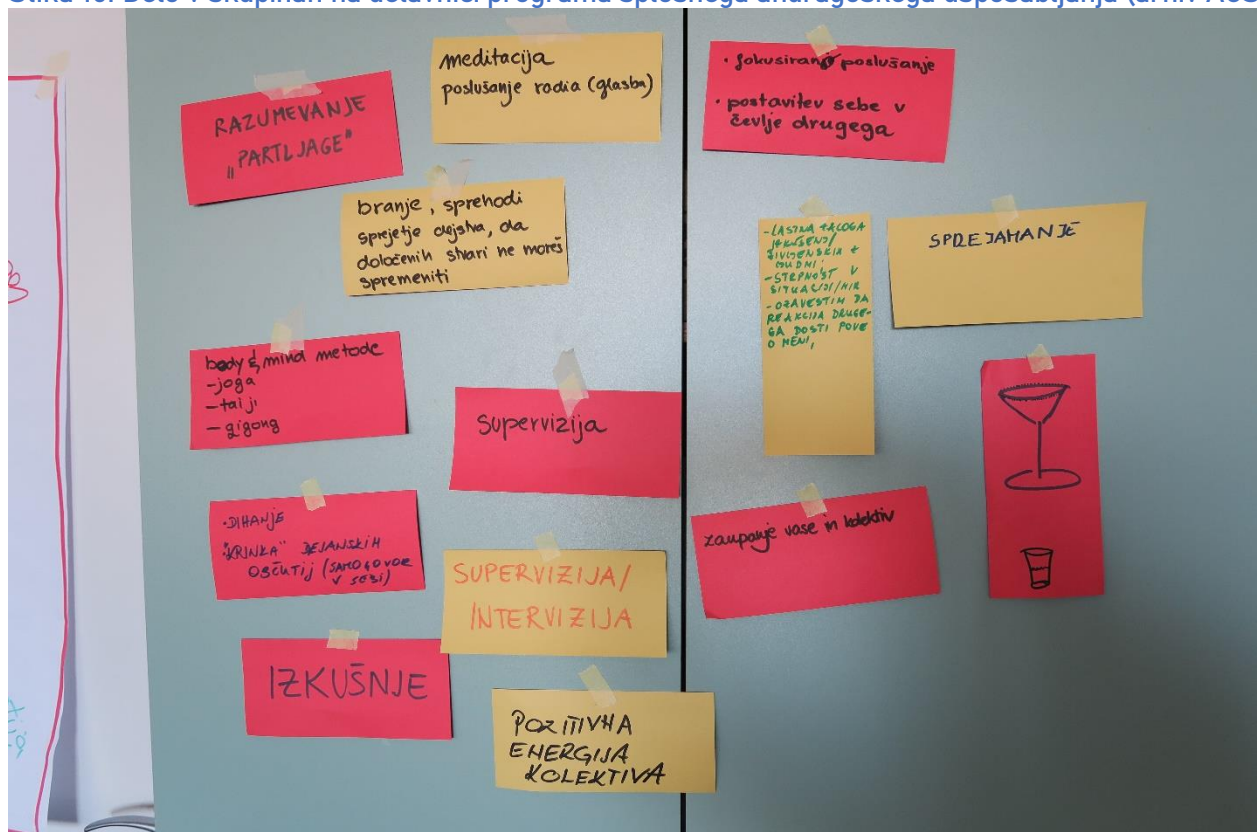 RAZUMEVANJE
"PARTLJAGE"
meditacija
poslušanje radia (glasba)
branje, sprehodi
sprejetje dejstva, da
določenih stvari ne moreš
spremeniti
body & mind metode
-joga
-tai ji
-gigong
Supervizija
•DIHANJE
"KRINKA" DEJANSKIH
OBČUTIJ (SAMOGOVOR
V SEBI)
SUPERVIZIJA/
INTERVIZIJA
IZKUŠNJE
POZITIVNA
ENERGIJA
KOLEKTIVA
• fokusirano poslušanje
• postavitev sebe v
čevlje drugega
-LASTNA ZALOGA
IZKUŠENJ/
ŽIVLJENSKIH +
-STRPNOST V
SITUACIJI/MIR
-OZAVESTIM DA
REAKCIJA DRUGE-
GA DOSTI POVE
O MENI,
SPREJAMANJE
zaupanje vase in kolektiv